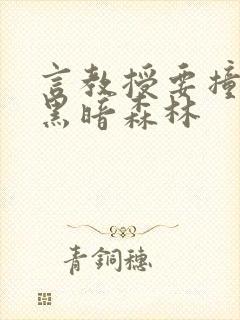 言教授要撞
黑暗森林
青銅穗